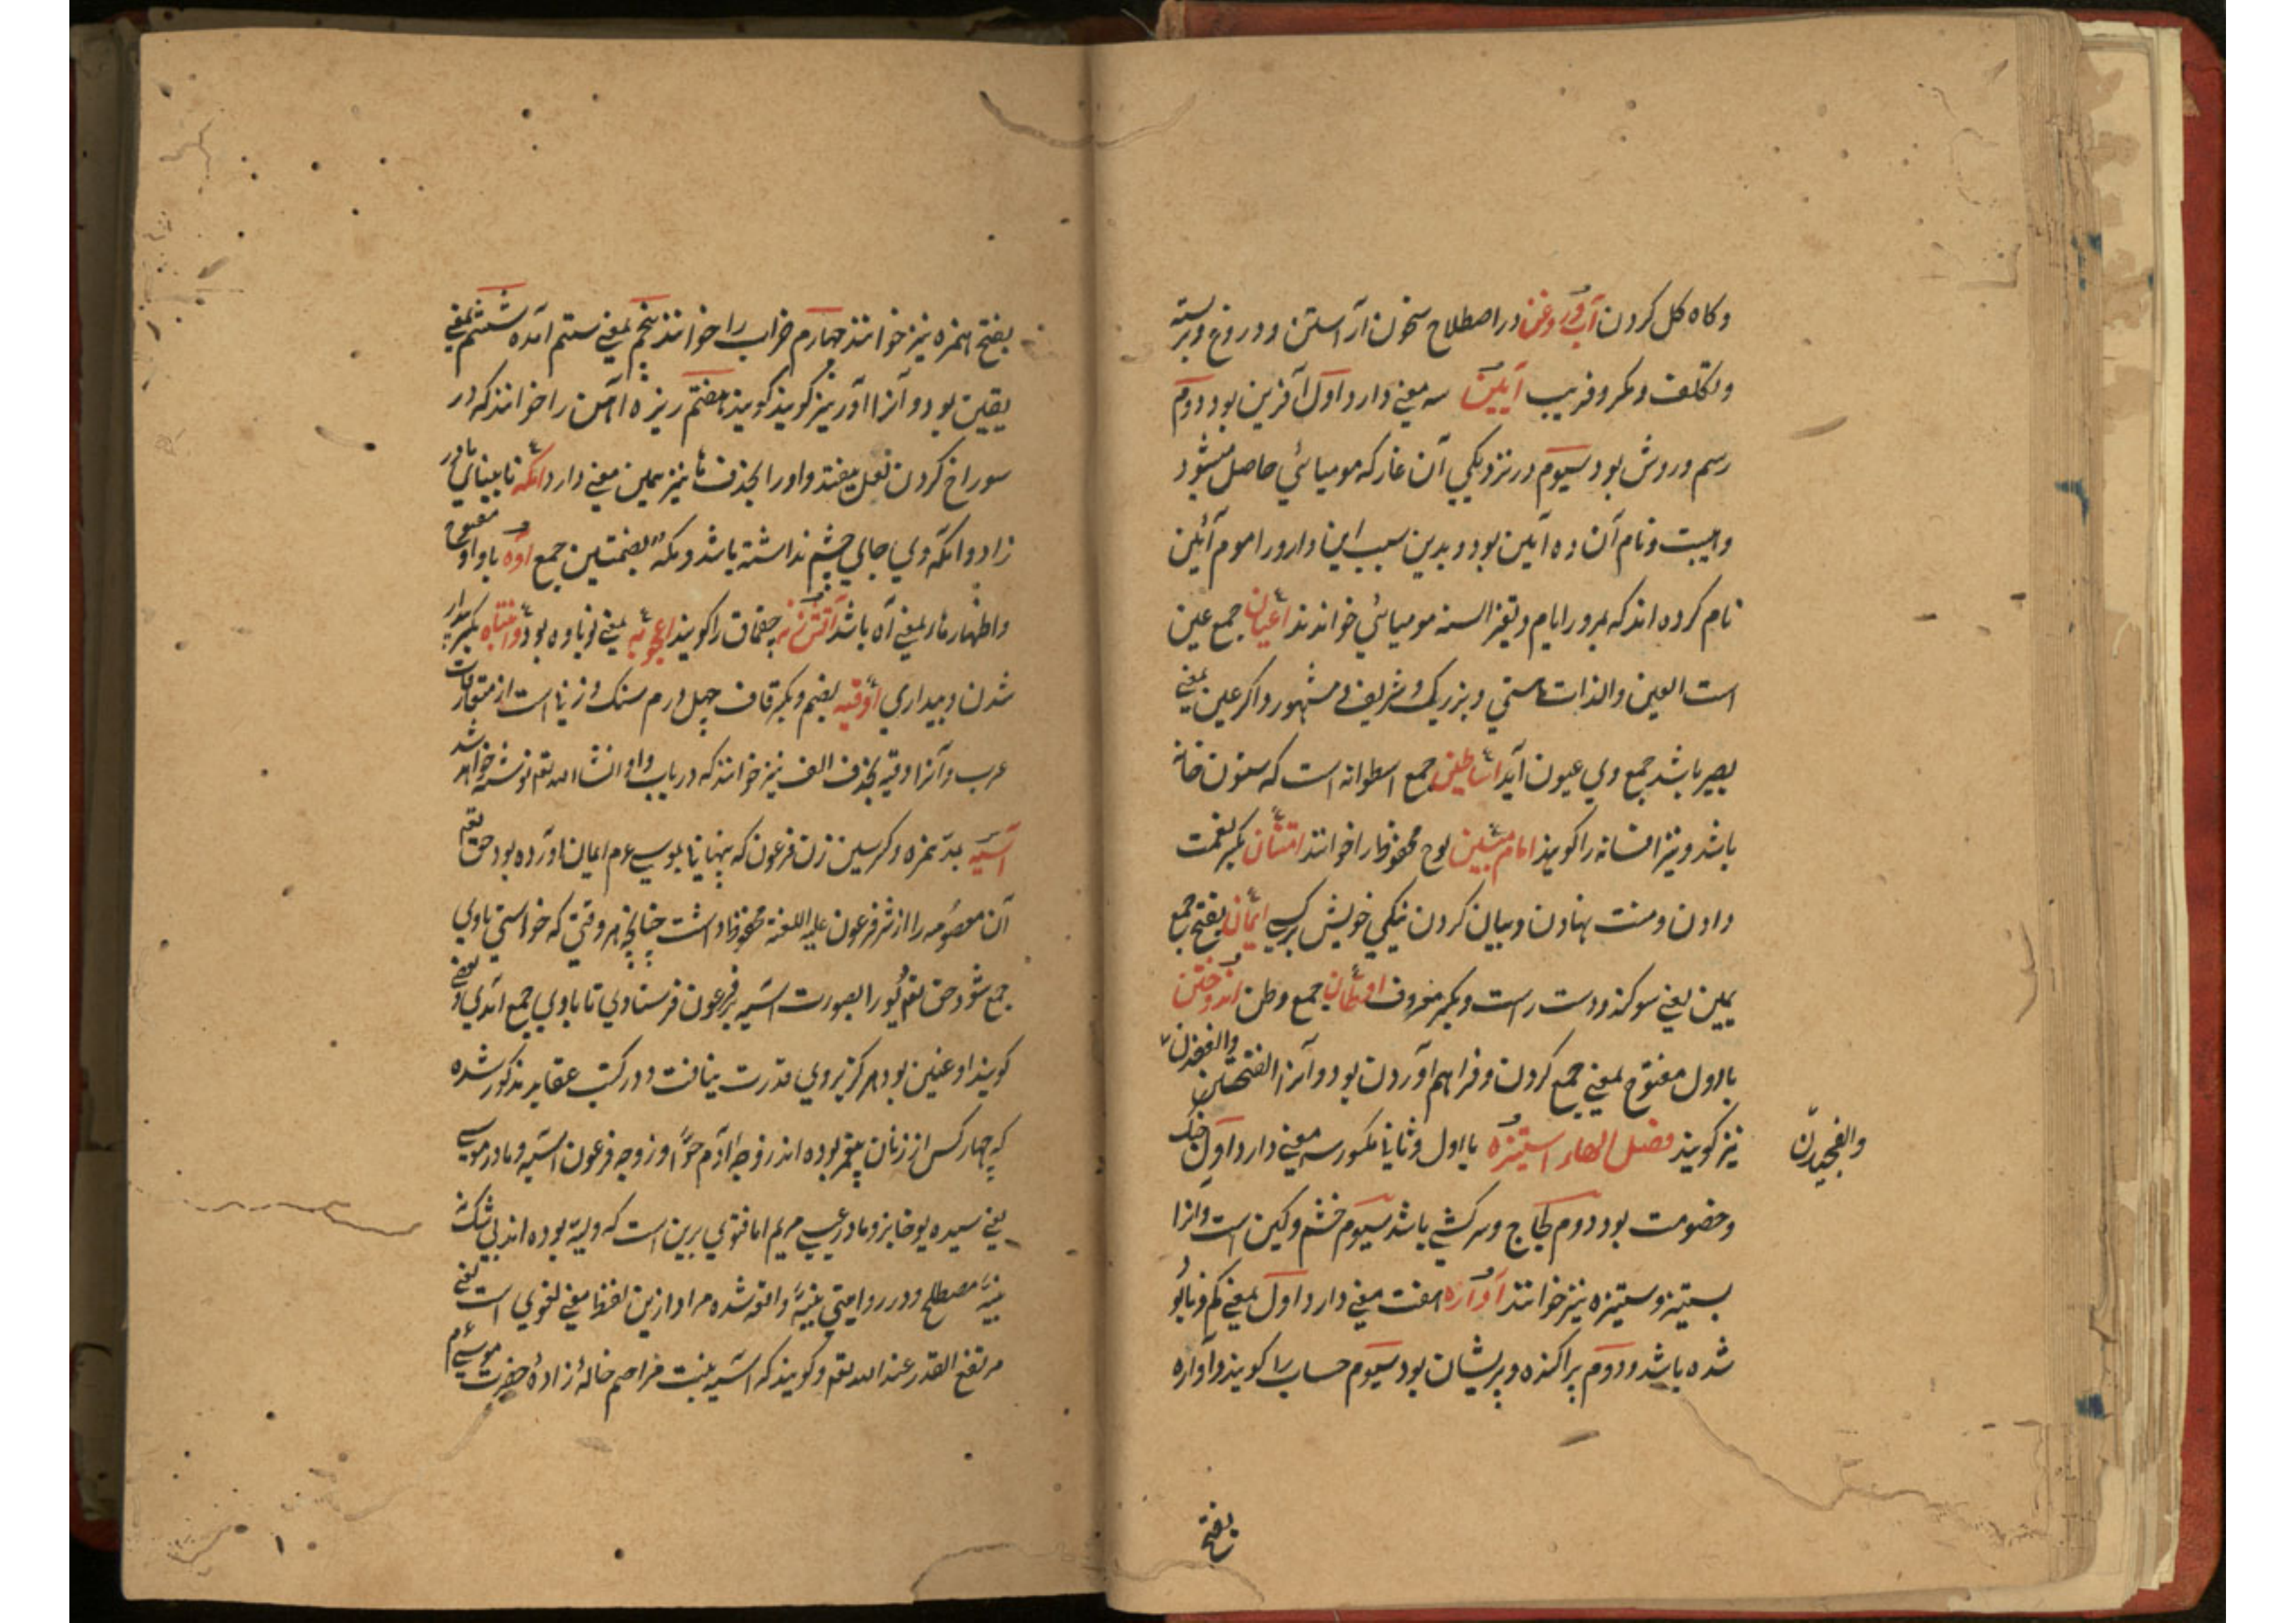 وکاه کل کردن آب و روغن در اصطلاح سخون آراستن و دروغ و بربسته
وتکلف ومکر وفریب آیین سه معنی دارد اول آفرین بود دوم
رسم وروش بود سیوم در نزدیکی آن غار که مومیائی حاصل میشود
وهیبت ونام آن ده آیین بود وبدین سبب این دارو را موم آئین
نام کرده اند که بمرور ایام وتغیر السنه مومیائی خوانند اعیان جمع عین
است العین والذات هستی وبزرک وشریف ومشهور واکر عین بمعنی
بصیر باشد جمع وی عیون آید اساطین جمع اسطوانه است که ستون خانه
باشد ونیز افسانه را کویند امام مبین لوح محفوظ را خوانند امتنان بکسر نعمت
دادن ومنت نهادن وبیان کردن نیکی خویش برکسی ایمان بفتح جمع
یمین یعنی سوکند ودست راست وبکسر معروف اوطان جمع وطن اندوختن
بااول مفتوح بمعنی جمع کردن وفراهم آوردن بود وآنرا الفختن والفغدن
نیز کویند فصل الهاء استیزه بااول وثانی مکسور سه معنی دارد اول جنک
والفجیدن
وخصومت بود دوم لجاج وسرکشی باشد سیوم خشم وکین است وانرا
ستیز وستیزه نیز خوانند آواره هفت معنی دارد اول بمعنی کم ونابود
شده باشد ودوم پراکنده وپریشان بود سیوم حساب را کویند وآواره
بفتح
بفتح همزه نیز خوانند چهارم خراب را خوانند پنجم بمعنی ستم آمده ششم بمعنی
یقین بود وآنرا آور نیز کویند کویند هفتم ریزه آهن را خوانند که در
سوراخ کردن نعل بیفتد واورا بحذف ها نیز همین معنی دارد اکمه نابینای مادر
زاد وانکه وی جای چشم نداشته باشد وکمه بضمتین جمع اوه با واو مفتوح
واظهار هاء بمعنی آه باشد آتش زنه چقماق را کویند اعجوبه بمعنی نوباوه بود وانتباه بکسر بیدار
شدن وبیداری اوقیه بضم وبکسر قاف چهل درم سنک وزنی است از متعارفات
عرب وآنرا وقیه بحذف الف نیز خوانند که در باب واو انشاالله تعم نوشته خواهد شد
آسیه بمد همزه وکسر سین زن فرعون که پنهانی بموسی عم ایمان آورده بود حق تعم
آن معصومه را از شر فرعون علیه اللعنه محفوظ داشت چنانچه هر وقتی که خواستی باوی
جمع شود حق تعم حور را بصورت آسیه بر فرعون فرستادی تا باوی جمع آمدی وبعضی
کویند او عنین بود هرکز بروی قدرت نیافت ودر کتب عقاید مذکور شده
که چهار کس از زنان پیغمبر بوده اند زوجه آدم حوا وزوجه فرعون آسیه ومادر موسی
یعنی سیده یوخابز ومادر عیسی مریم اما فتوی برین است که ولیه بوده اند بی شک نه
نبیه مصطلح ودر روایتی نبیه واقع شده مراد ازین لفظ معنی لغوی است یعنی
مرتفع القدر عند الله تعم وکویند که آسیه بنت مزاحم خاله زاده حضرت موسی عم